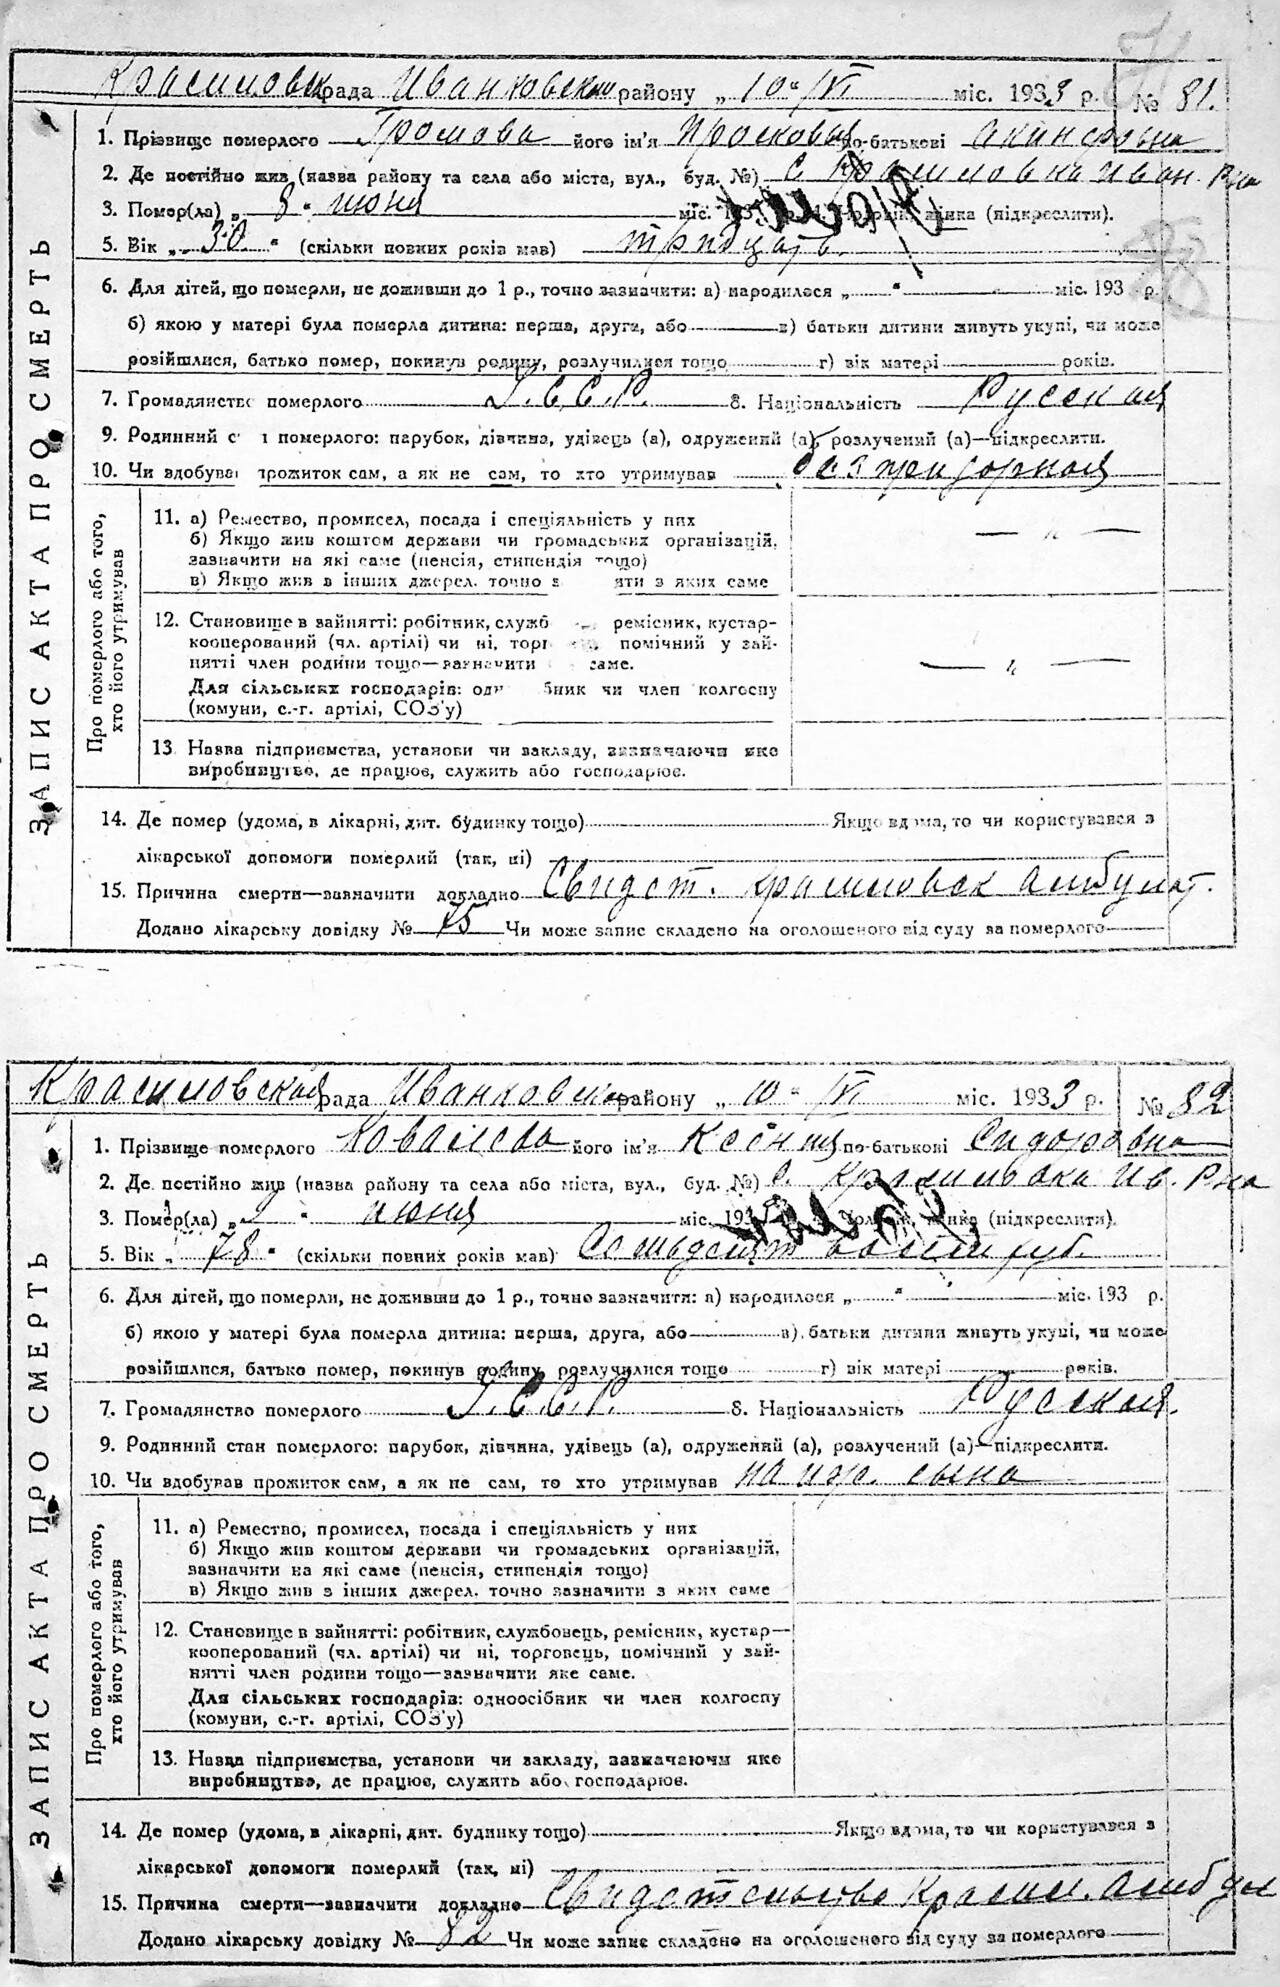 Красиловск рада Иванковского району „ 10 “ /VI міс. 1933 р. № 81.
1. Прізвище померлого Громова його ім'я Просковья по-батькові Акинфовна
2. Де постійно жив (назва району та села або міста, вул., буд. №) с. Красиловка Иван. Р-на
3. Помер(ла) „ 8 “ июня міс. 193 (підкреслити).
5. Вік „ 30 “ (скільки повних років мав) тридцать.
6. Для дітей, що померли, не доживши до 1 р., точно зазначити: а) народилося „ “ міс. 193 р.
б) якою у матері була померла дитина: перша, друга, або в) батьки дитини живуть укупі, чи може
розійшлися, батько помер, покинув родину, розлучилися тощо г) вік матері років.
7. Громадянство померлого У.С.С.Р. 8. Національність Русская
9. Родинний с н померлого: парубок, дівчина, удівець (а), одружений (а), розлучений (а)—підкреслити.
10. Чи вдобував прожиток сам, а як не сам, то хто утримував
ЗАПИС АКТА ПРО СМЕРТЬ
Про померлого або того, хто його утримував
11. а) Ремество, промисел, посада і спеціяльність у них
б) Якщо жив коштом держави чи громадських організацій,
зазначити на які саме (пенсія, стипендія тощо)
в) Якщо жив в інших джерел. точно з яти з яких саме
— „ —
12. Становище в зайнятті: робітник, служб ремісник, кустар-
кооперований (чл. артілі) чи ні, торг помічний у зай-
нятті член родини тощо—зазначити саме.
Для сільських господарів: од бник чи член колгоспу
(комуни, с.-г. артілі, СОЗ'у)
— „ —
13. Назва підприємства, установи чи закладу, зазначаючи яке
виробництво, де працює, служить або господарює.
14. Де помер (удома, в лікарні, дит. будинку тощо) Якщо вдома, то чи користувався з
лікарської допомоги померлий (так, ні)
15. Причина смерти—зазначити докладно Свидет. Красиловск амбулат.
Додано лікарську довідку № 75 Чи може запис складено на оголошеного від суду за померлого
Красиловская рада Иванковского району „ 10 “ /VI міс. 1933 р. № 82
1. Прізвище померлого Ковалева його ім'я Ксения по-батькові Сидоровна
2. Де постійно жив (назва району та села або міста, вул., буд. №) с. Красиловка Ив. Р-на
3. Помер(ла) „ 9 “ июня міс. 193 (підкреслити).
5. Вік „ 78 “ (скільки повних років мав) Семьдесят восемь
6. Для дітей, що померли, не доживши до 1 р., точно зазначити: а) народилося „ “ міс. 193 р.
б) якою у матері була померла дитина: перша, друга, або в) батьки дитини живуть укупі, чи може
розійшлися, батько помер, покинув родину, розлучилися тощо г) вік матері років.
7. Громадянство померлого У.С.С.Р. 8. Національність Русская.
9. Родинний стан померлого: парубок, дівчина, удівець (а), одружений (а), розлучений (а)—підкреслити.
10. Чи вдобував прожиток сам, а як не сам, то хто утримував на иж. сына
ЗАПИС АКТА ПРО СМЕРТЬ
Про померлого або того, хто його утримував
11. а) Ремество, промисел, посада і спеціяльність у них
б) Якщо жив коштом держави чи громадських організацій,
зазначити на які саме (пенсія, стипендія тощо)
в) Якщо жив з інших джерел. точно зазначити з яких саме
12. Становище в зайнятті: робітник, службовець, ремісник, кустар—
кооперований (чл. артілі) чи ні, торговець, помічний у зай-
нятті член родини тощо—зазначити яке саме.
Для сільських господарів: одноосібник чи член колгоспу
(комуни, с.-г. артілі, СОЗ'у)
13. Назва підприємства, установи чи закладу, зазначаючи яке
виробництво, де працює, служить або господарює.
14. Де помер (удома, в лікарні, дит. будинку тощо) Якщо вдома, то чи користувався з
лікарської допомоги померлий (так, ні)
15. Причина смерти—зазначити докладно Свидетельство Красил. амбул
Додано лікарську довідку № 82 Чи може запис складено на оголошеного від суду за померлого